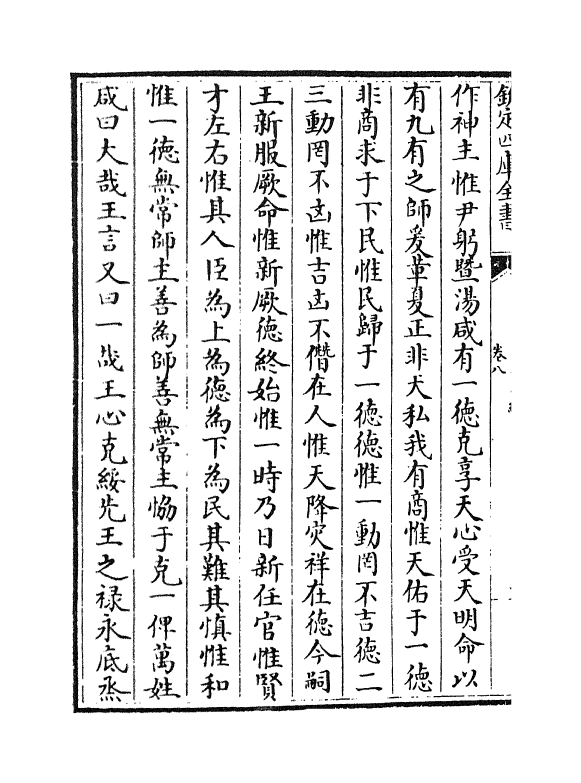 欽定四庫全書
卷八
作神主惟尹躬暨湯咸有一德克享天心受天明命以
有九有之師爰革夏正非天私我有商惟天佑于一德
非商求于下民惟民歸于一德德惟一動罔不吉德二
三動罔不凶惟吉凶不僭在人惟天降灾祥在德今嗣
王新服厥命惟新厥德終始惟一時乃日新任官惟賢
才左右惟其人臣為上為德為下為民其難其慎惟和
惟一德無常師主善為師善無常主恊于克一俾萬姓
咸曰大哉王言又曰一哉王心克綏先王之禄永底烝